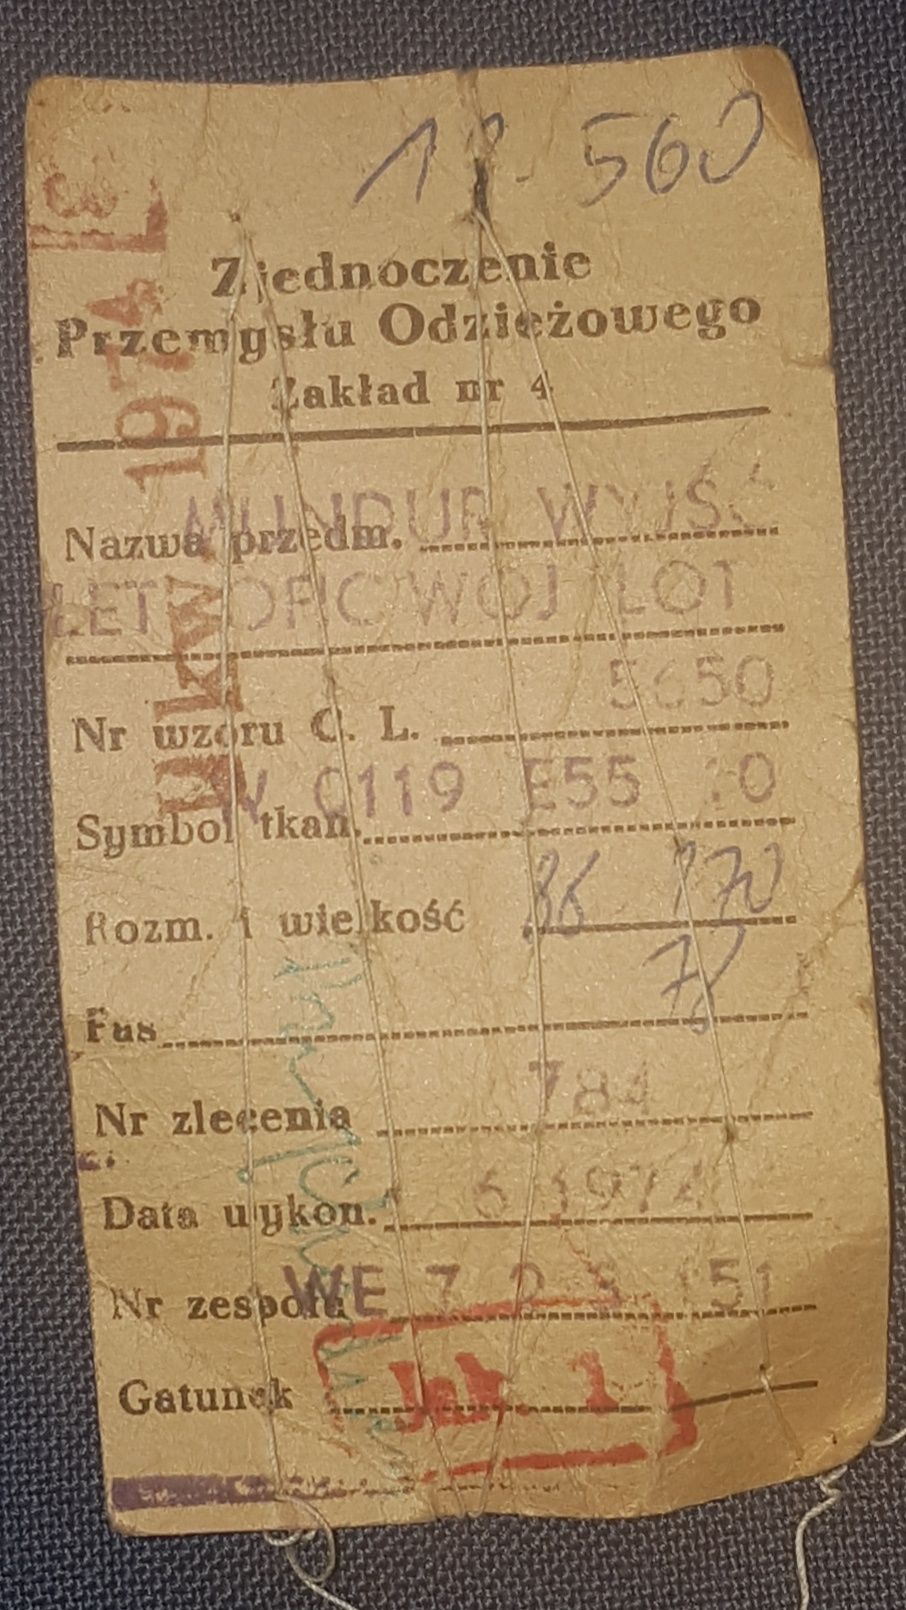 560
Zjednoczenie
Przemysłu Odzieżowego
Zakład nr 4
II kw 1974
Nazwa przedm. MUNDUR WYJŚĆ
LET OFIC WOJ LOT
Nr wzoru C. L. 5650
Symbol tkan. W 0119 E55
Rozm. i wielkość 86 170
78
Fas
Nr zlecenia 784
Data wykon. 6 1974
Nr zespołu WE 7 2 151
Gatunek Jak. 1